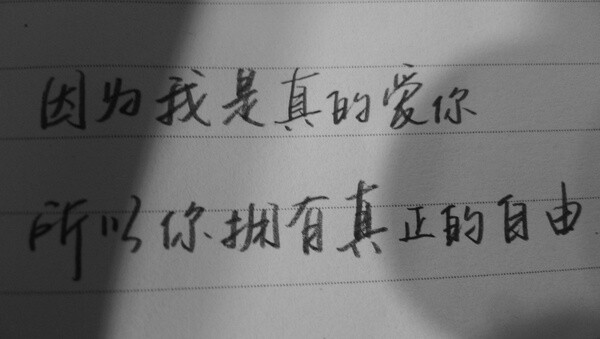 因为我是真的爱你
所以你拥有真正的自由